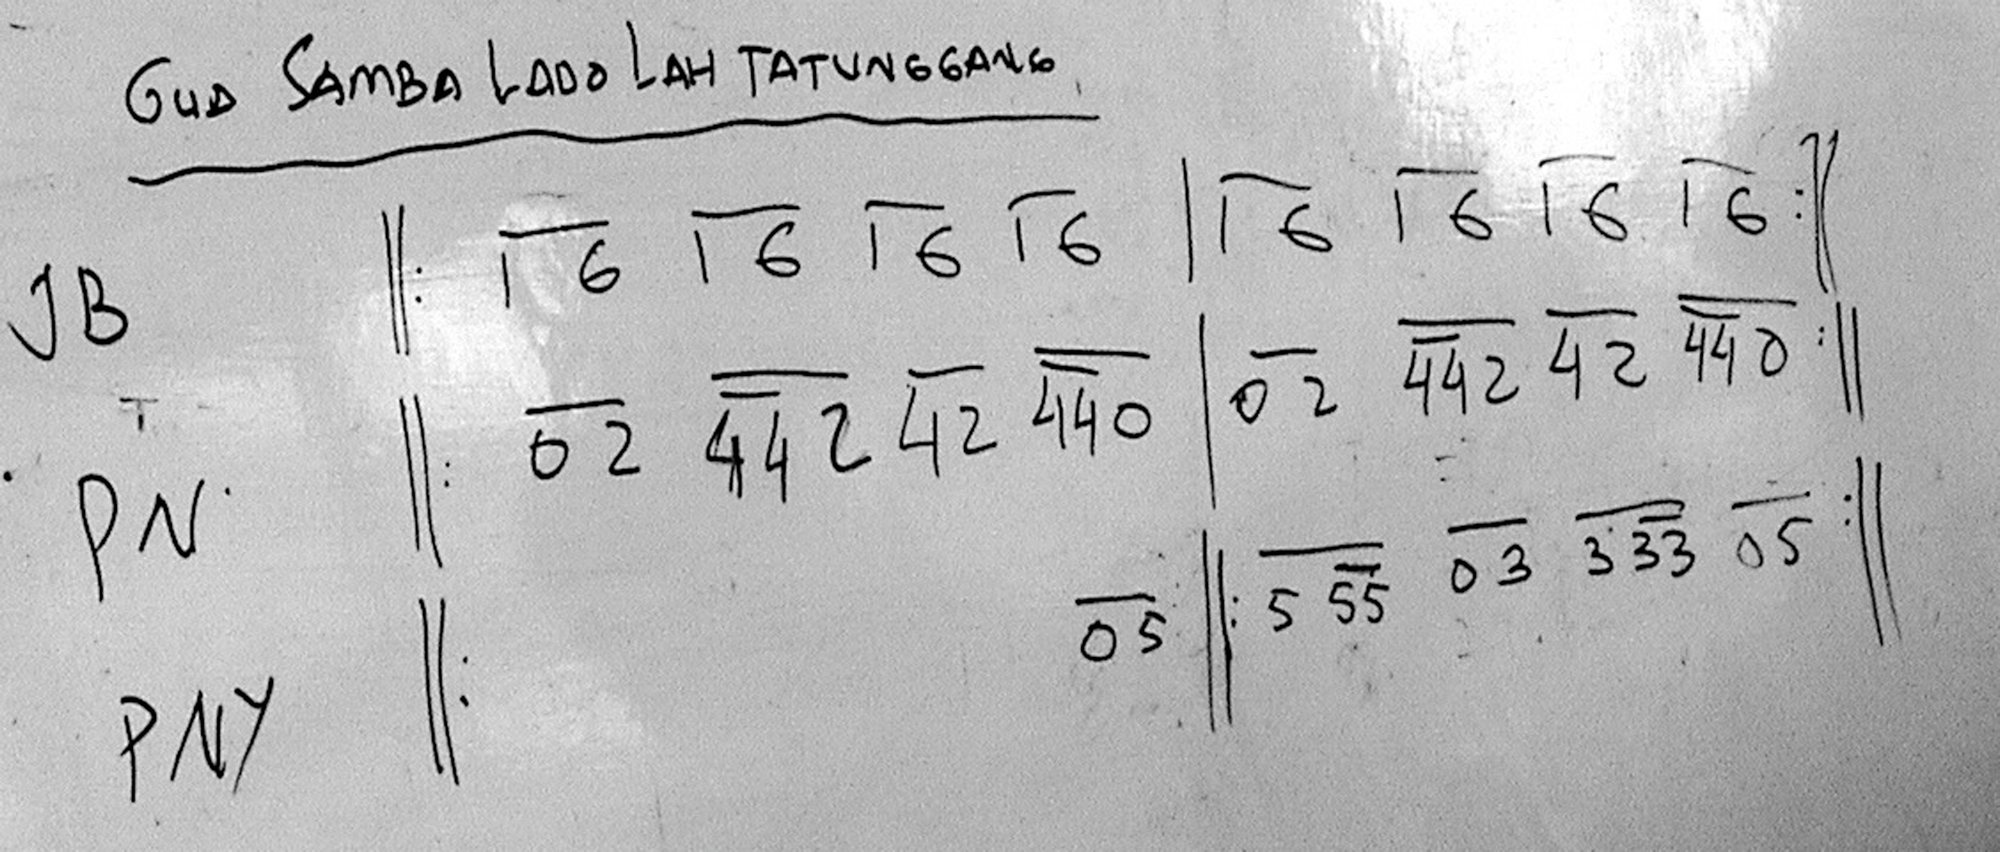 GUA SAMBA LADO LAH TATUNGGANG
JB ||: 1 6 1 6 1 6 1 6 | 1 6 1 6 1 6 1 6 :||
PN. ||: 0 2 4 4 2 4 2 4 4 0 | 0 2 4 4 2 4 2 4 4 0 :||
PNY ||: 0 5 ||: 5 5 5 0 3 3 3 3 0 5 :||